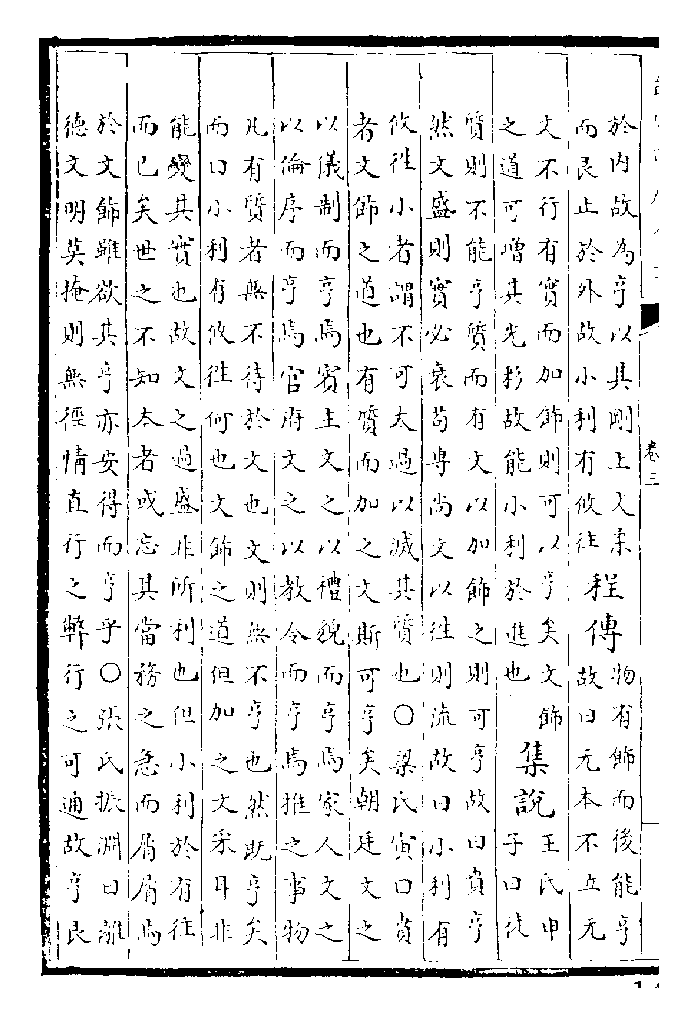 卷三
於內故為亨以其剛上文柔
而艮止於外故小利有攸往
程傳
物有飾而後能亨
故曰无本不立无
文不行有實而加飾則可以亨矣文飾
之道可增其光彩故能小利於進也
集說
王氏申
子曰徒
質則不能亨質而有文以加飾之則可亨故曰賁亨
然文盛則實必衰苟專尚文以往則流故曰小利有
攸往小者謂不可太過以滅其質也〇梁氏寅曰賁
者文飾之道也有質而加之文斯可亨矣朝廷文之
以儀制而亨焉賓主文之以禮貌而亨焉家人文之
以倫序而亨焉官府文之以教令而亨焉推之事物
凡有質者無不待於文也文則無不亨也然既亨矣
而曰小利有攸往何也文飾之道但加之文采耳非
能變其實也故文之過盛非所利也但小利於有往
而已矣世之不知本者或忘其當務之急而屑屑焉
於文飾雖欲其亨亦安得而亨乎〇張氏振淵曰離
德文明莫掩則無徑情直行之弊行之可通故亨艮